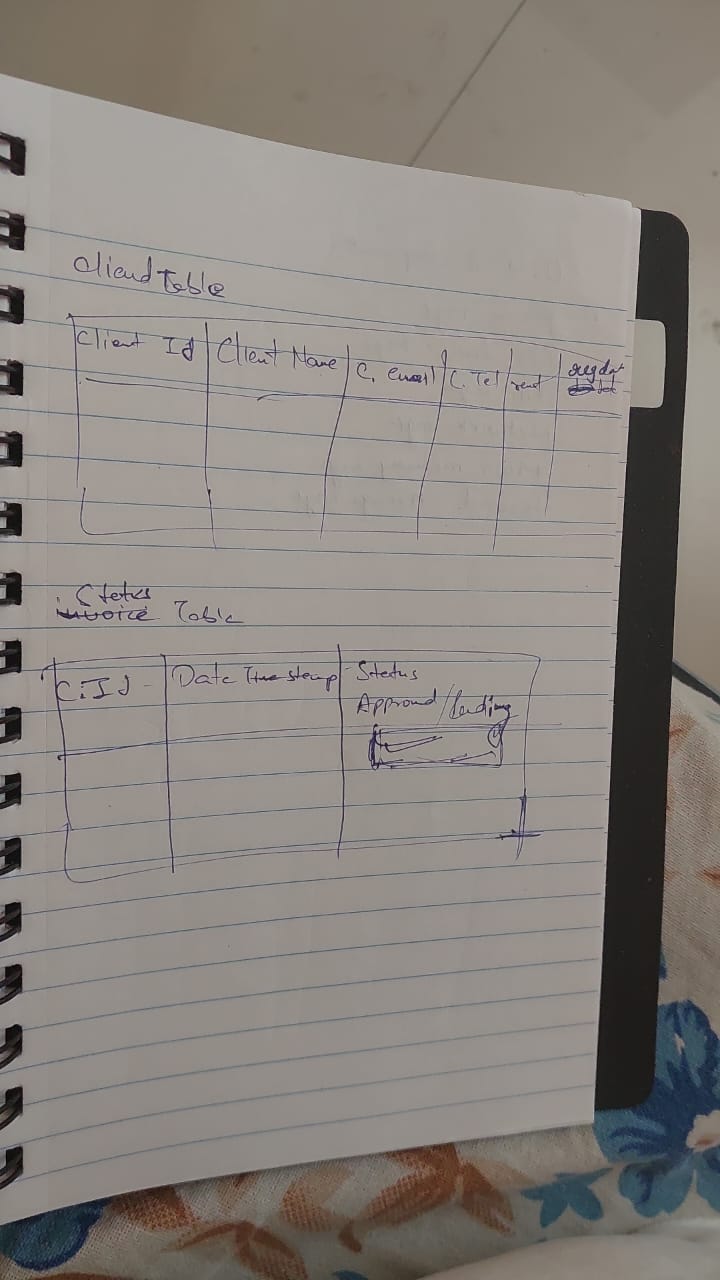 Client Table
Client Id Client Name C. email C. Tel rent reg dat
Status
invoice Table
C.Id Date Time stamp Status
Approved/Pending